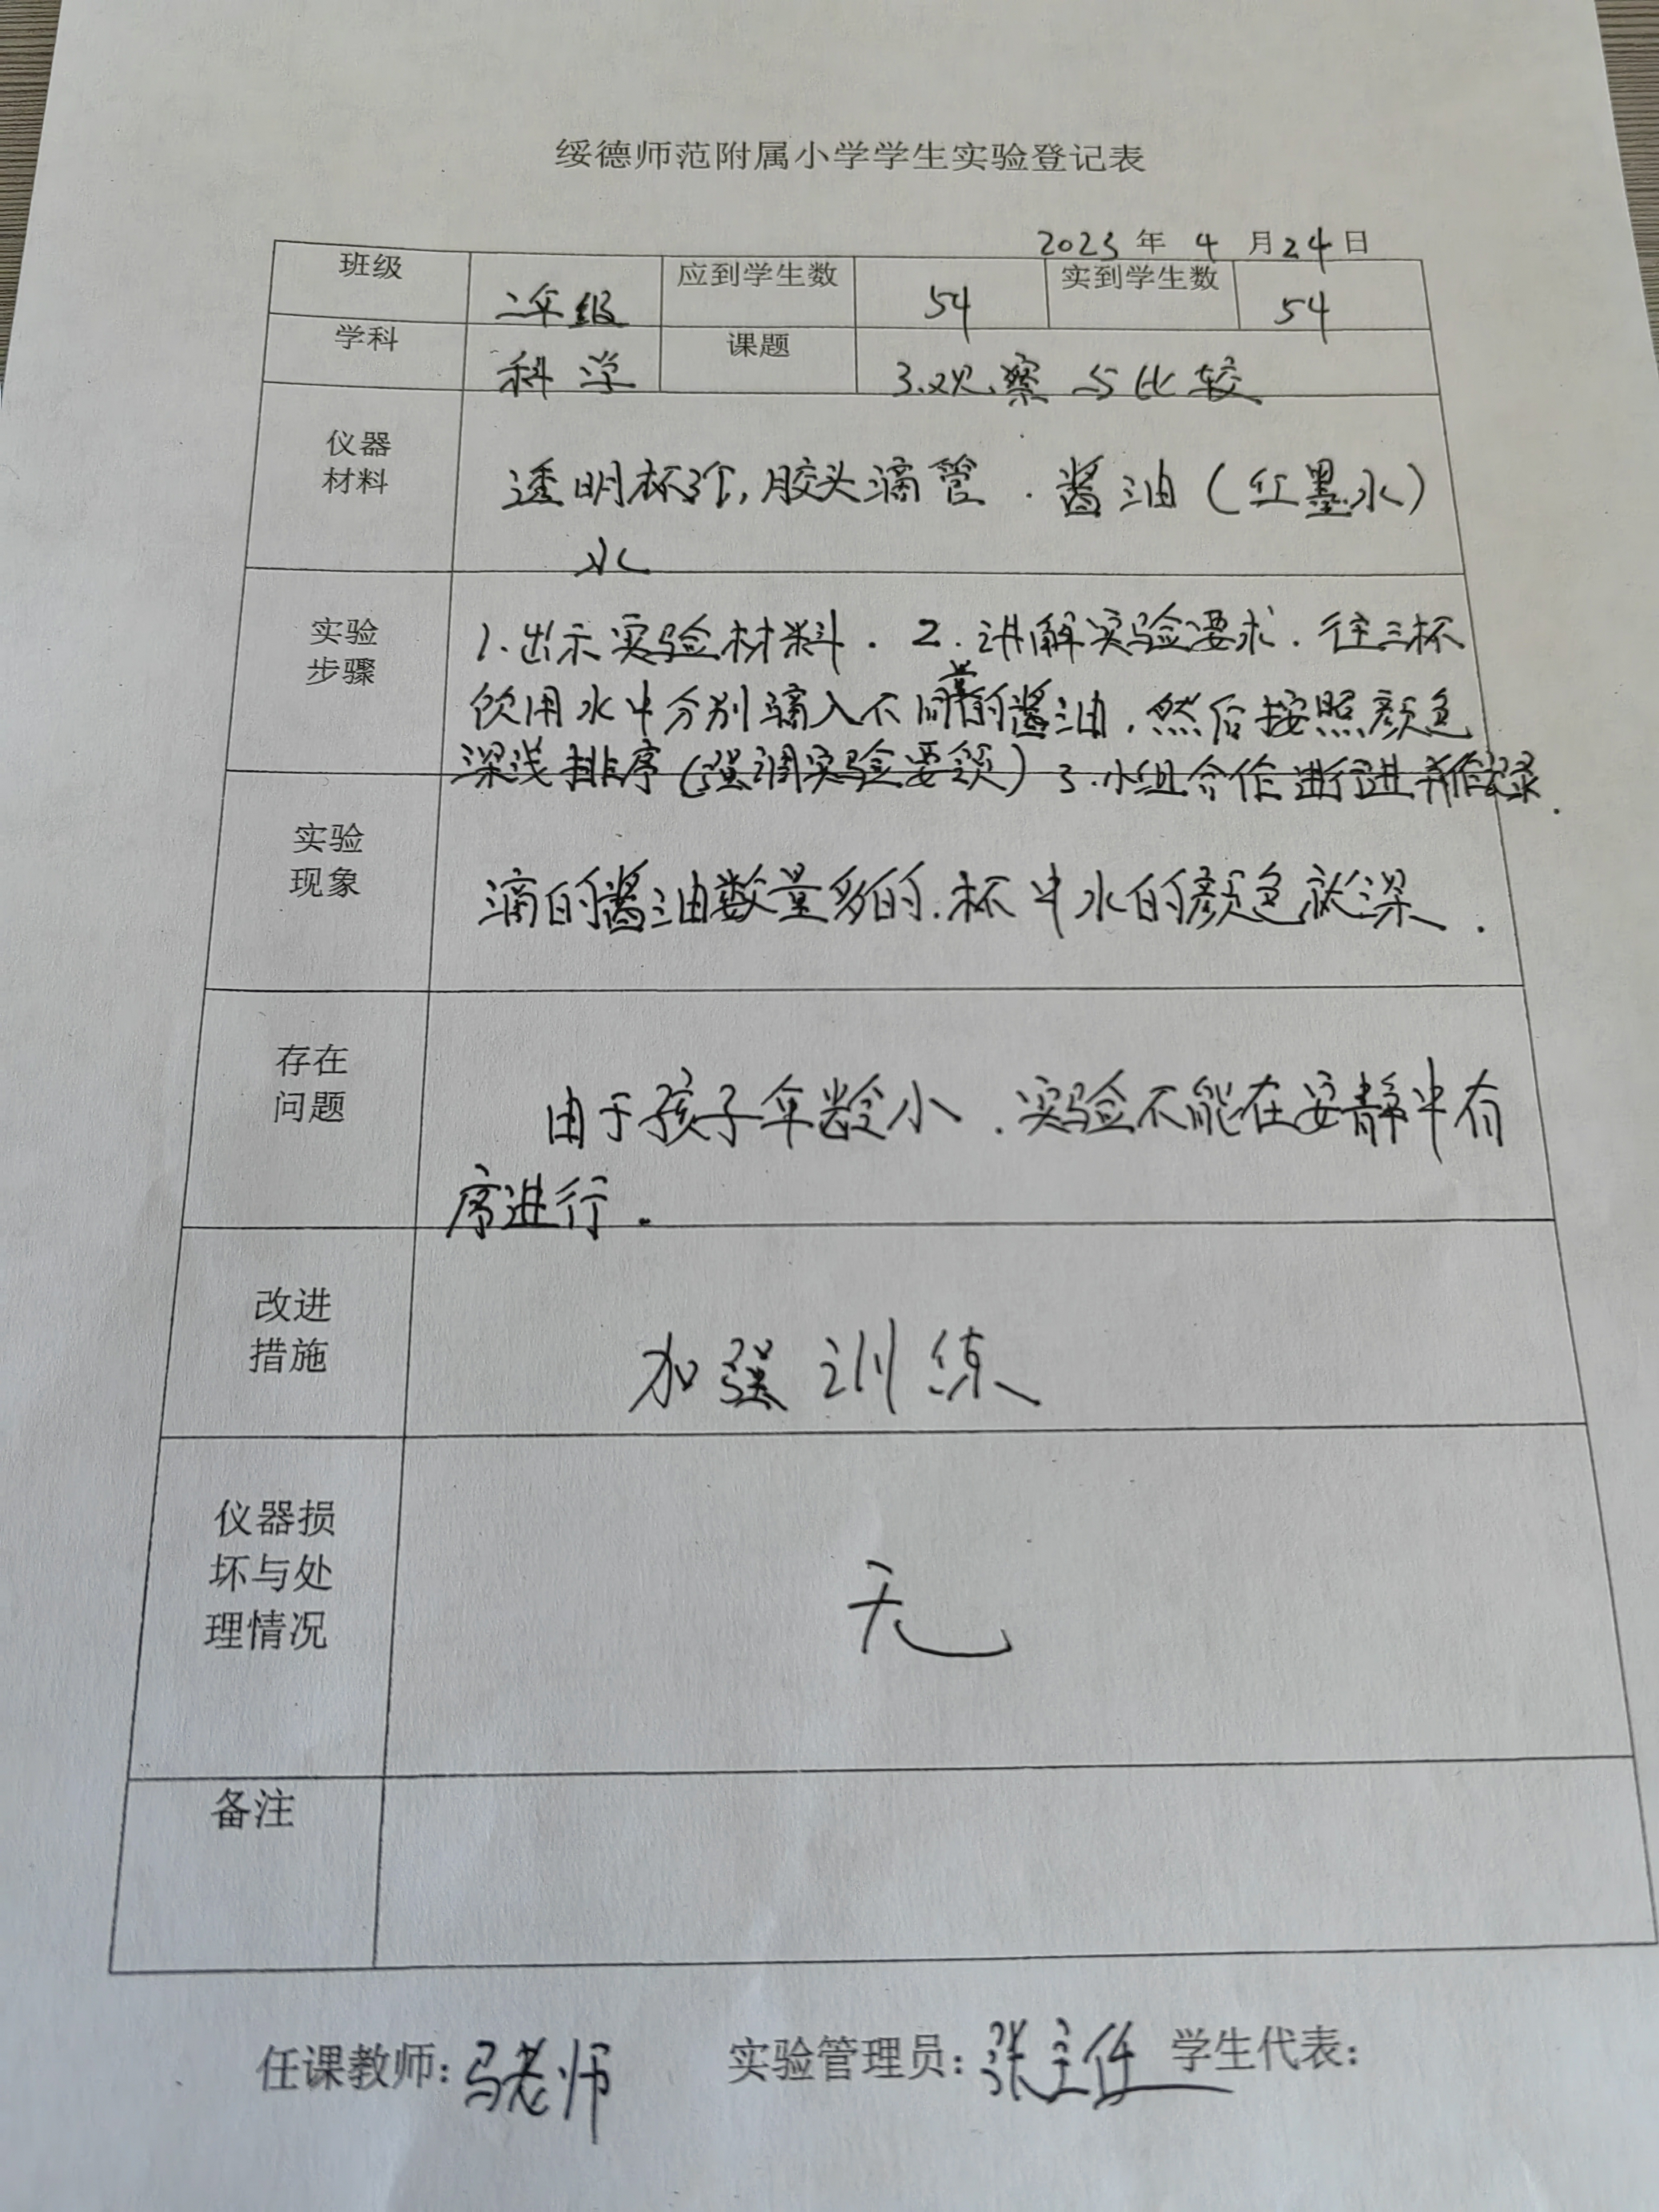 绥德师范附属小学学生实验登记表
2023 年 4 月 24 日
班级 二年级 应到学生数 54 实到学生数 54
学科 科学 课题 3.观察与比较
仪器材料 透明杯3个,胶头滴管.酱油(红墨水)
水
实验步骤 1.出示实验材料.2.讲解实验要求.往三杯
饮用水中分别滴入不同量的酱油,然后按照颜色
深浅排序(强调实验要领)3.小组合作进行进并作记录.
实验现象 滴的酱油数量多的.杯中水的颜色就深.
存在问题 由于孩子年龄小.实验不能在安静中有
序进行.
改进措施 加强训练
仪器损坏与处理情况 无
备注
任课教师:马老师 实验管理员:张主任 学生代表: